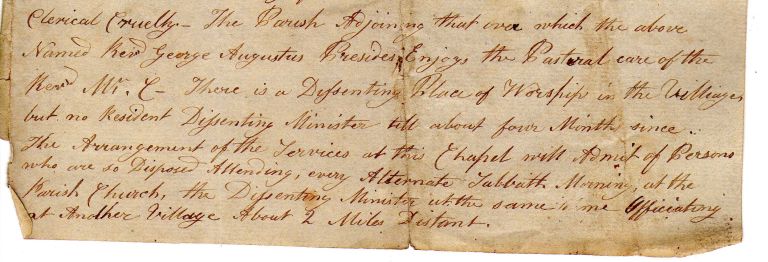 Clerical Cruelty – The Parish Adjoining that over which the above
Named Revd George Augustus Presides, Enjoys the Pastural care of the
Revd Mr. C – There is a Dissenting Place of Worship in the Village,
but no Resident Dissenting Minister till about four Month since..
The Arrangement of the Services at this Chapel will Admit of Persons
who are so Disposed Attending, every Alternate Sabbath Morning, at the
Parish Church, the Dissenting Minister at the same time Officiating
at Another Village About 2 Miles Distant.